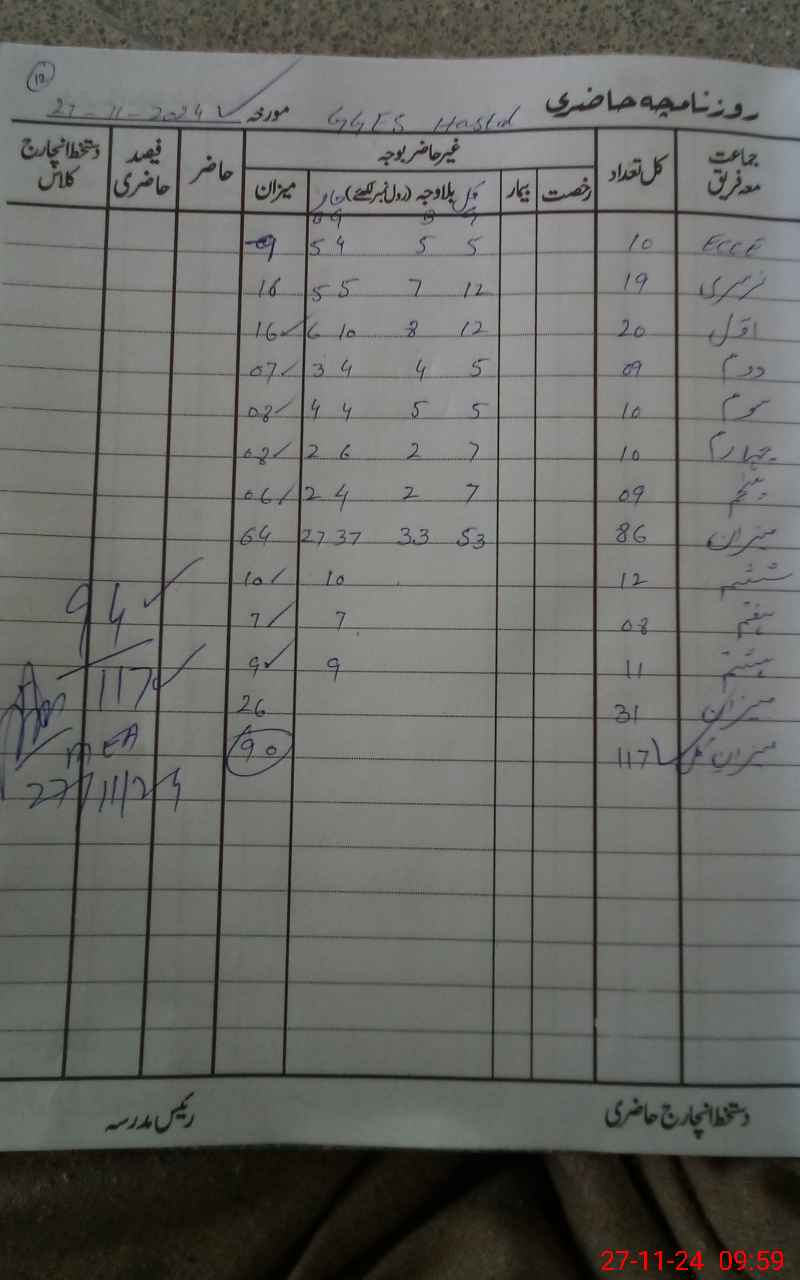 12
روزنامچہ حاضری GGES مورخہ 27-11-2024
جماعت معہ فریق کل تعداد غیر حاضر بوجہ حاضر فیصد حاضری دستخط انچارج کلاس
رخصت بیمار کل بلاوجہ (رول نمبر لکھئے) میزان
B G
ECCE 10 5 5 4 5 09
نرسری 19 12 7 5 5 16
اول 20 12 8 10 6 16
دوم 09 5 4 4 3 07
سوم 10 5 5 4 4 08
چہارم 10 7 2 6 2 08
پنجم 09 7 2 4 2 06
میزان 86 53 33 37 27 64
ششم 12 10 10
ہفتم 08 7 7
ہشتم 11 9 9
میزان 31 26
میزان کل 117 90
94
117
MEA
27/11/24
دستخط انچارج حاضری رئیس مدرسہ
27-11-24 09:59